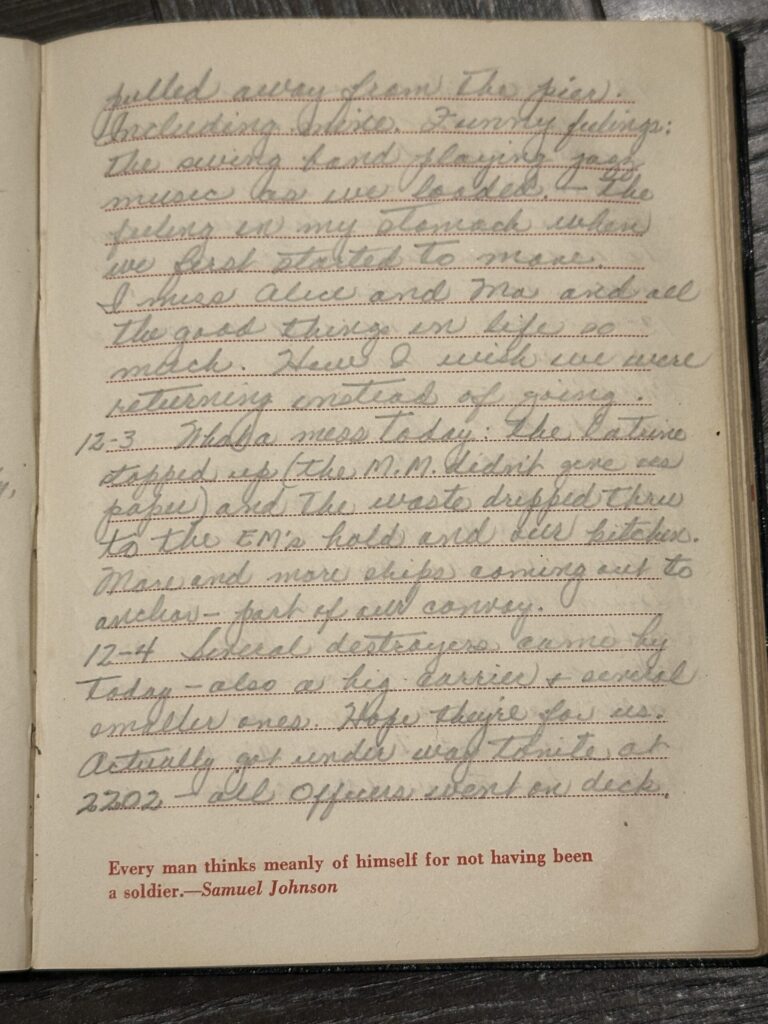 pulled away from the pier.
Including mine. Funny feelings:
the swing band playing jazz
music as we loaded. — The
feeling in my stomach when
we first started to move.
I miss Alice and Ma and all
the good things in life so
much. How I wish we were
returning instead of going.
12-3 What a mess today. The latrine
stopped up (the M.M. didn't give us
paper) and the waste dripped thru
to the EM's hold and our kitchen.
More and more ships coming out to
anchor — part of our convoy.
12-4 Several destroyers came by
today — also a big carrier & several
smaller ones. Hope they're for us.
Actually got under way tonite at
2202 — all Officers went on deck.
Every man thinks meanly of himself for not having been
a soldier.—Samuel Johnson